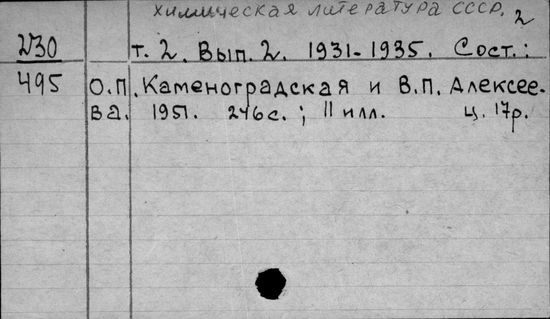 химическая литература СССР, 2
230 т. 2. Вып. 2. 1931-1935. Сост.:
495 О.П. Каменоградская и В.П. Алексее-
ва. 1951. 246с.; 11 илл. ц. 17р.